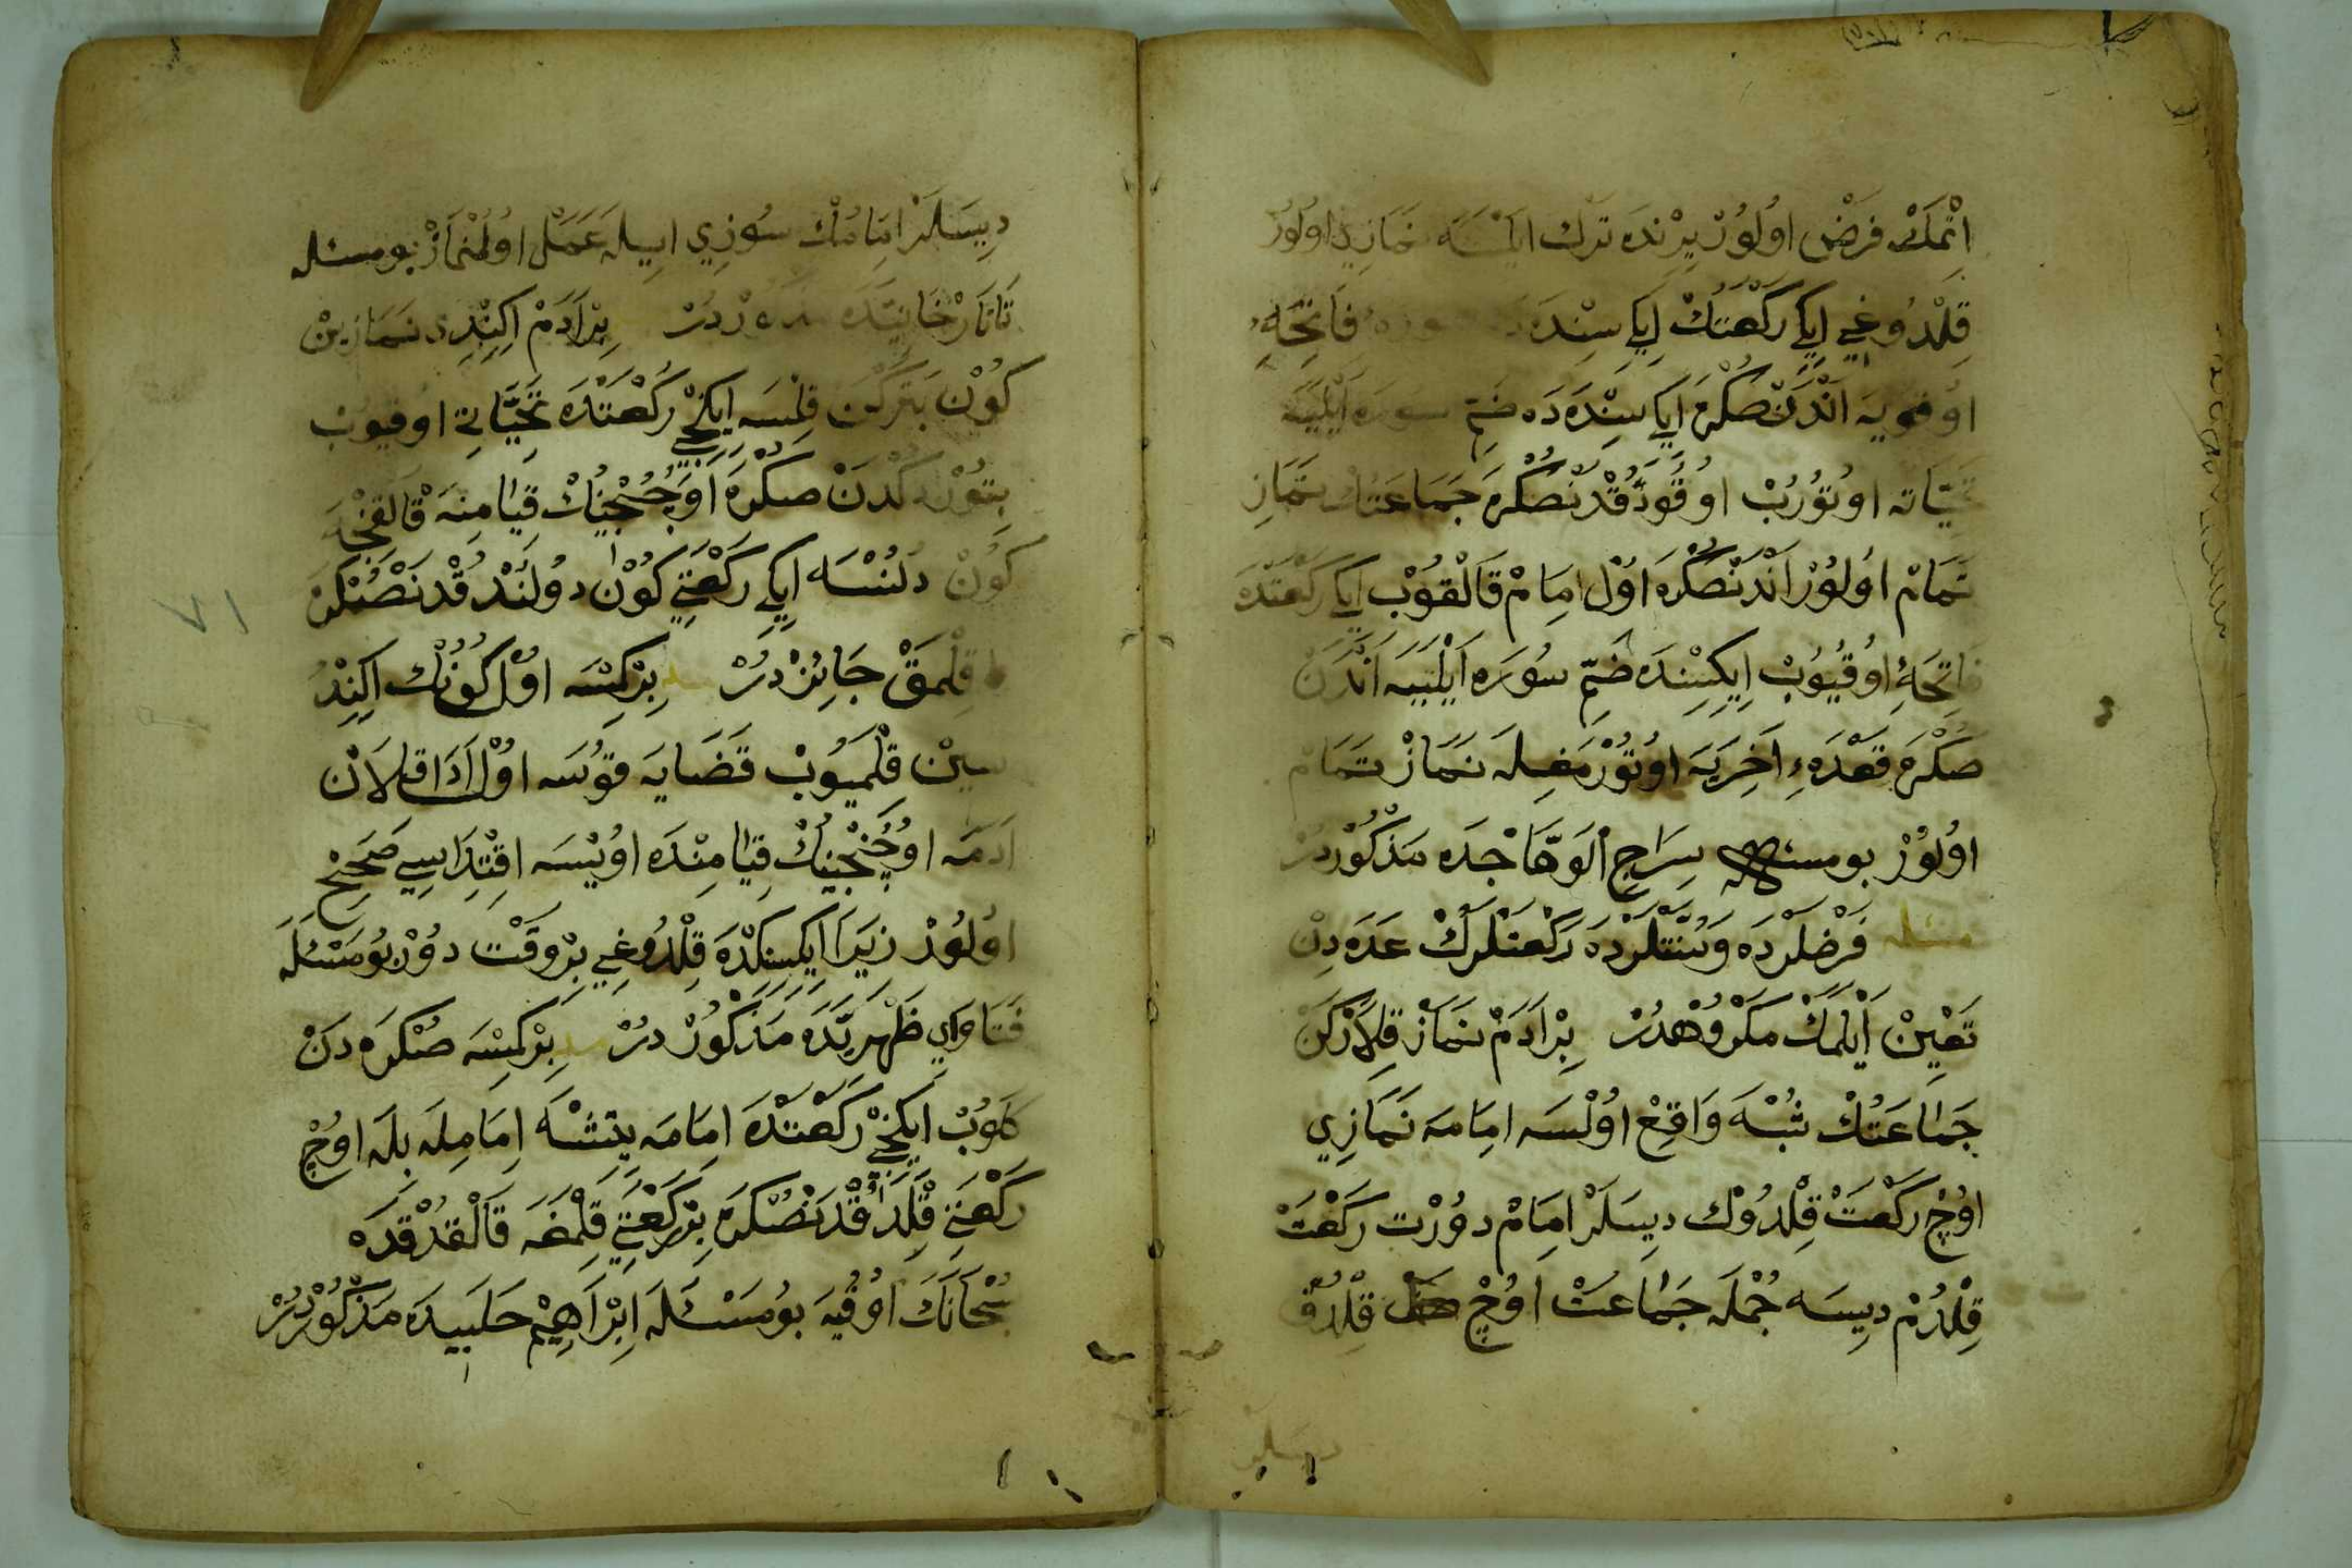 اتْمَكْ فَرْضْ اُولُوْرْ بِرْنِدَه تَرْك ايلَسَه نَمَازِيدْ اوُلُورْ
قِلْدُوغِي اِيكِي رَكْعَتُكْ اِيكِيسِنْدَه دَه فَاتِحَهءِ
اوُقويَه اَنْدَنْ صُكْرَه اِيكِيسِنْدَه دَه ضَمِّ سوره اَيْلَيَه
تَحِيَّاته اوُتوُرُبْ اوُقُودُقْدَنْصُكْرَه جَمَاعَتُكْ نَمَازِ
تَمَامْ اوُلوُرْ اَنْدَنْصُكْرَه اوُل امَامْ قَالْقُوبْ اِيكِي رَكْعَتْدَه
فَاتِحَهءِ اوُقيُوبْ اِيكِيسِنْدَه ضَمِّ سوُرَه اَيْلَيَه اَنْدَنْ
صُكْرَه قَعْدَهءِ اَخِرَيَه اوُتوُرْمَغِلَه نَمَازْ تَمَامْ
اوُلوُرْ بو مسئله سِرَاجِ اْلوَهَّاجْدَه مَذْكُوْردُرْ
مسئله فَرْضْلَرْدَه وَسُنَّتْلَرْدَه رَكْعَتْلَرُكْ عَدَدِنْ
تَعْيِينْ اَيْلَمَكْ مَكْرُوُهْدُرْ بِرْ اَدَمْ نَمَازْ قِلَارْكَنْ
جَمَاعَتُكْ شُبْهَ وَاقِعْ اوُلْسَه امَامَه نَمَازِي
اوُچْ رَكْعَتْ قِلْدُوُكْ ديسَلَرْ امَامْ دوُرْت رَكْعَتْ
قِلْدُمْ ديسَه جُمْلَه جَمَاعَتْ اوُچْ قِلْدُقْ
ديسلر
ديسَلَرْ امَامُكْ سُوزِي ايلَه عَمَلْ اوُلُنْمَازْ بو مسئله
تَاتَارْخَانِيَّدَه مذكوردُرْ بِرْ اَدَمْ اِكِنْدِي نَمَازِينْ
كوُنْ بَتَرْكَنْ قِلْسَه اِيكِنْجِي رَكْعَتْدَه تَحِيَّاتِي اوُقيوُبْ
بِتوُرْدُكْدَنْ صُكْرَه اوُچُنْجِينُكْ قِيَامِنَه قَالْقِنْجَه
كوُنْ دُلُنْسَه اِيكِي رَكْعَتِي كوُنْ دوُلُنْدُقْدَنْصُكْرَه
قِلْمَقْ جَائِزْدُرْ بِرْ كِسَه اوُل كوُنُكْ اِكِنْدِ
سينْ قِلْميوُبْ قَضَايَه قوُسَه اوُل اَدَا قِلَانْ
اَدَمَه اوُچُنْجِينُكْ قِيَامِنْدَه اوُيْسَه اقْتِدَاسِي صَحِيحْ
اوُلوُرْ زيرَا اِيكِيسِنِكْدَه قِلْدُوغِي بِرْ وَقْت دُوُرْ بوُ مَسْئَلَه
فَتَاوَايِ ظَهِيرِيَّدَه مَذْكُورْ دُرْ مسئله بِرْ كِسَه صُكْرَه دَنْ
كَلوُبْ اِيكِنْجِي رَكْعَتْدَه امَامَه يتِشْسَه اِمَامِلَه بِلَه اوُچْ
رَكْعَتِي قِلْدُقْدَنْصُكْرَه بِرْ رَكْعَتِي قِلْمَغَه قَالْقدُقْدَه
سُبْحَانَكْ اوُقُيَه بوُمَسْئَلَه اِبْرَاهِيمْ حَلَبيدَه مَذْكُوْردُرْ